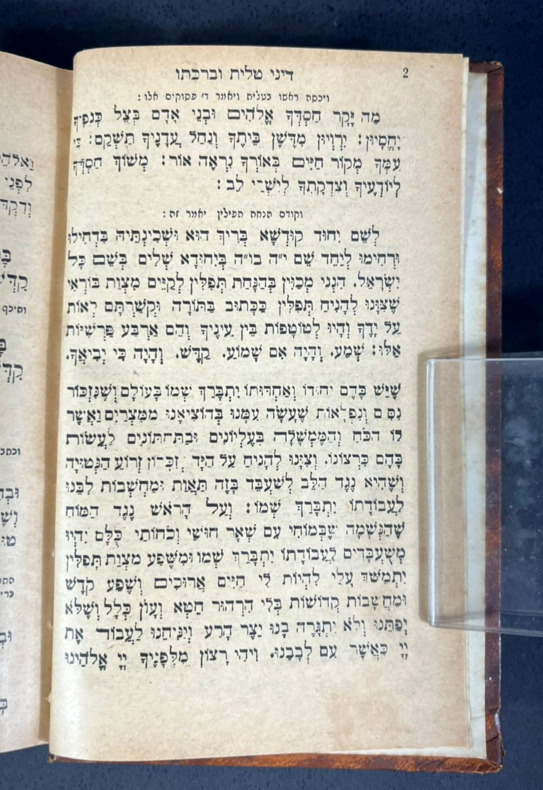 דיני טלית וברכתו 2
ויכסה ראשו בטלית ויאמר ד׳ פסוקים אלו:
מַה יָּקָר חַסְדְּךָ אֱלֹהִים וּבְנֵי אָדָם בְּצֵל כְּנָפֶיךָ
יֶחֱסָיוּן: יִרְוְיֻן מִדֶּשֶׁן בֵּיתֶךָ וְנַחַל עֲדָנֶיךָ תַשְׁקֵם: כִּי
עִמְּךָ מְקוֹר חַיִּים בְּאוֹרְךָ נִרְאֶה אוֹר: מְשׁוֹךְ חַסְדְּךָ
לְיוֹדְעֶיךָ וְצִדְקָתְךָ לְיִשְׁרֵי לֵב:
וקודם הנחת תפילין יאמר זה:
לְשֵׁם יִחוּד קוּדְשָׁא בְּרִיךְ הוּא וּשְׁכִינְתֵּיהּ בִּדְחִילוּ
וּרְחִימוּ לְיַחֵד שֵׁם י״ה בו״ה בְּיִחוּדָא שְׁלִים בְּשֵׁם כָּל
יִשְׂרָאֵל. הִנְנִי מְכַוֵּין בַּהֲנָחַת תְּפִלִּין לְקַיֵּם מִצְוַת בּוֹרְאִי
שֶׁצִּוָּנוּ לְהָנִיחַ תְּפִלִּין כַּכָּתוּב בַּתּוֹרָה וּקְשַׁרְתָּם לְאוֹת
עַל יָדֶךָ וְהָיוּ לְטוֹטָפוֹת בֵּין עֵינֶיךָ וְהֵם אַרְבַּע פָּרָשִׁיּוֹת
אֵלּוּ: שְׁמַע. וְהָיָה אִם שָׁמוֹעַ. קַדֶּשׁ. וְהָיָה כִּי יְבִיאֲךָ.
שֶׁיֵּשׁ בָּהֶם יִחוּדוֹ וְאַחְדוּתוֹ יִתְבָּרַךְ שְׁמוֹ בָּעוֹלָם וְשֶׁנִּזְכּוֹר
נִסִּים וְנִפְלָאוֹת שֶׁעָשָׂה עִמָּנוּ בְּהוֹצִיאָנוּ מִמִּצְרַיִם וַאֲשֶׁר
לוֹ הַכֹּחַ וְהַמֶּמְשָׁלָה בָּעֶלְיוֹנִים וּבַתַּחְתּוֹנִים לַעֲשׂוֹת
בָּהֶם כִּרְצוֹנוֹ. וְצִוָּנוּ לְהָנִיחַ עַל הַיָּד לְזִכְרוֹן זְרוֹעַ הַנְּטוּיָה
וְשֶׁהִיא נֶגֶד הַלֵּב לְשַׁעְבֵּד בָּזֶה תַּאֲוֹת וּמַחְשְׁבוֹת לִבֵּנוּ
לַעֲבוֹדָתוֹ יִתְבָּרַךְ שְׁמוֹ: וְעַל הָרֹאשׁ נֶגֶד הַמּוֹחַ
שֶׁהַנְּשָׁמָה שֶׁבְּמוֹחִי עִם שְׁאָר חוּשַׁי וְכֹחוֹתַי כֻּלָּם יִהְיוּ
מְשֻׁעְבָּדִים לַעֲבוֹדָתוֹ יִתְבָּרַךְ שְׁמוֹ וּמִשֶּׁפַע מִצְוַת תְּפִלִּין
יִתְמַשֵּׁךְ עָלַי לִהְיוֹת לִי חַיִּים אֲרוּכִים וְשֶׁפַע קֹדֶשׁ
וּמַחֲשָׁבוֹת קְדוֹשׁוֹת בְּלִי הִרְהוּר חֵטְא וְעָוֹן כְּלָל וְשֶׁלֹּא
יְפַתֵּנוּ וְלֹא יִתְגָּרֶה בָּנוּ יֵצֶר הָרָע וְיַנִּיחֵנוּ לַעֲבוֹד אֶת
יְיָ כַּאֲשֶׁר עִם לְבָבֵנוּ. וִיהִי רָצוֹן מִלְּפָנֶיךָ יְיָ אֱלֹהֵינוּ